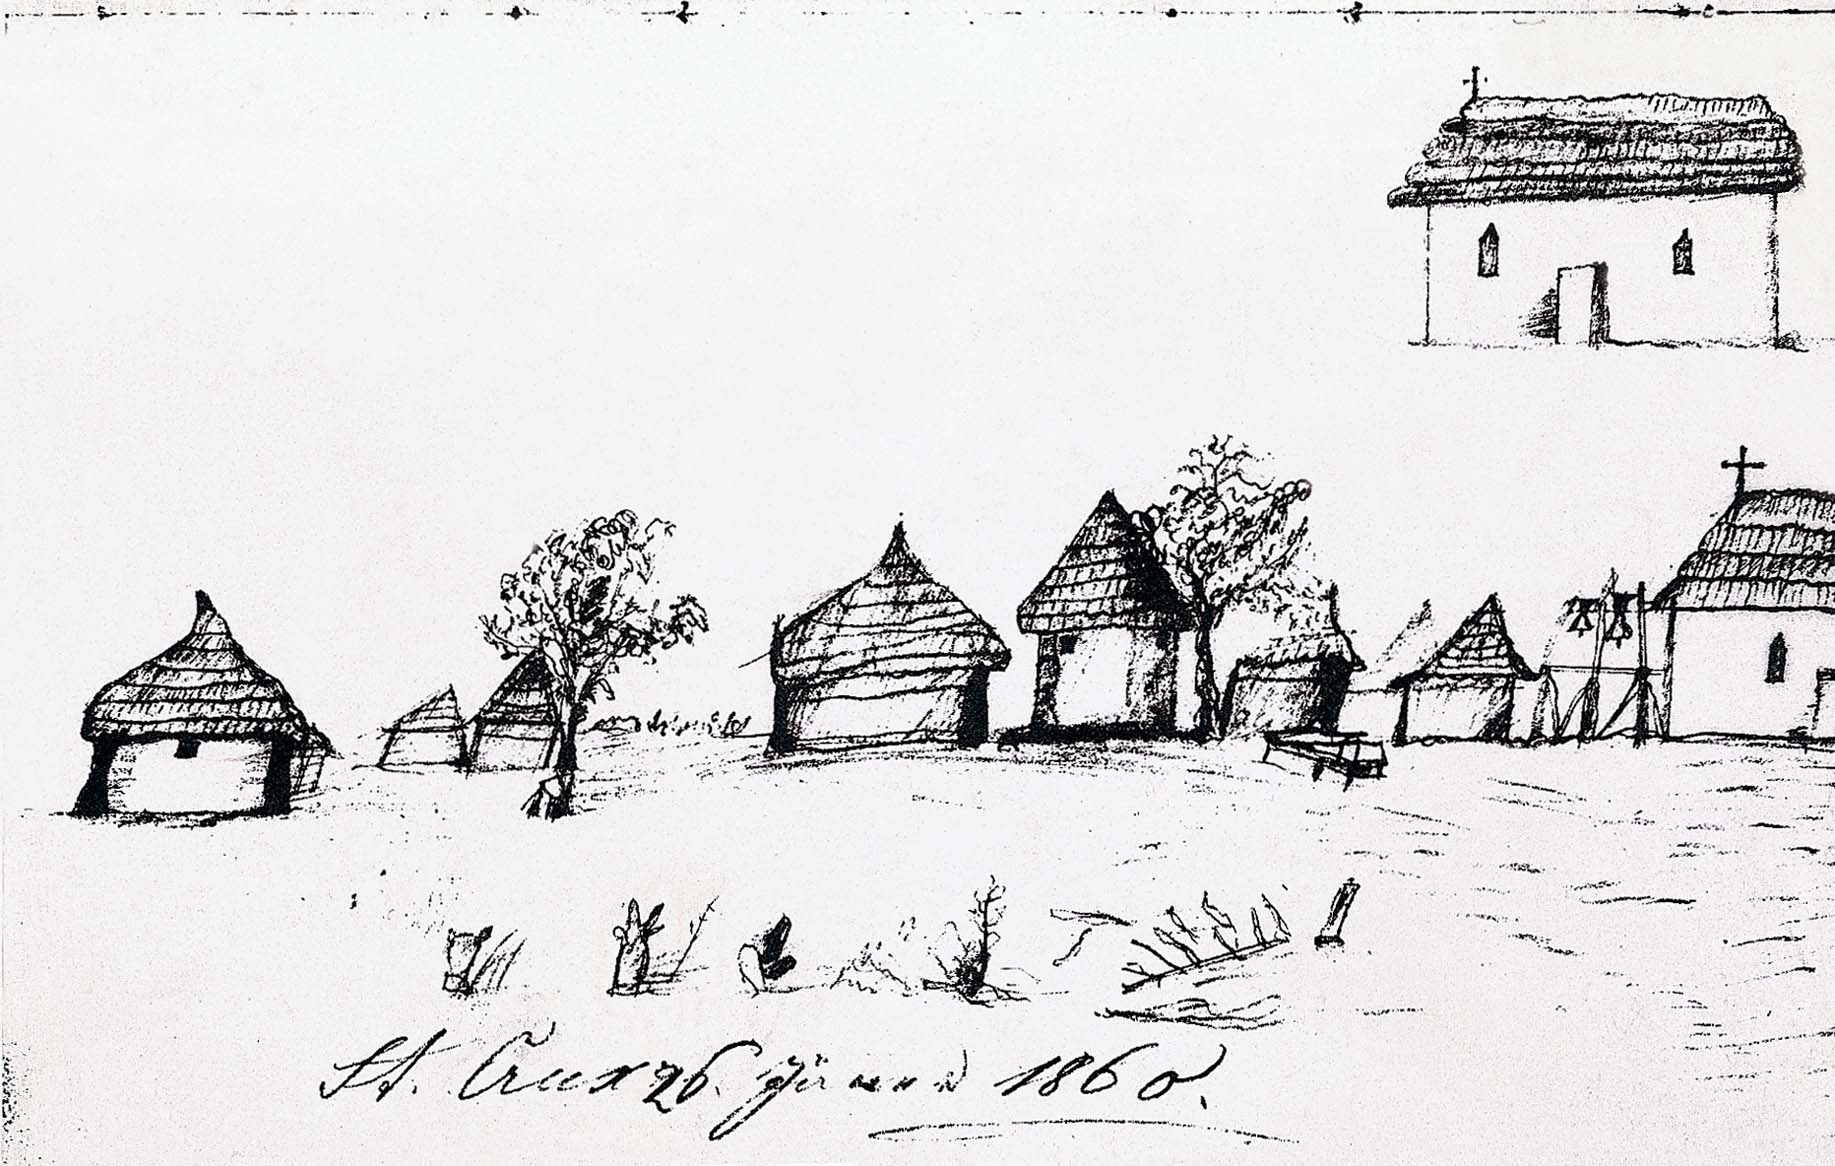 St. Crux 26. Jänner 1860.